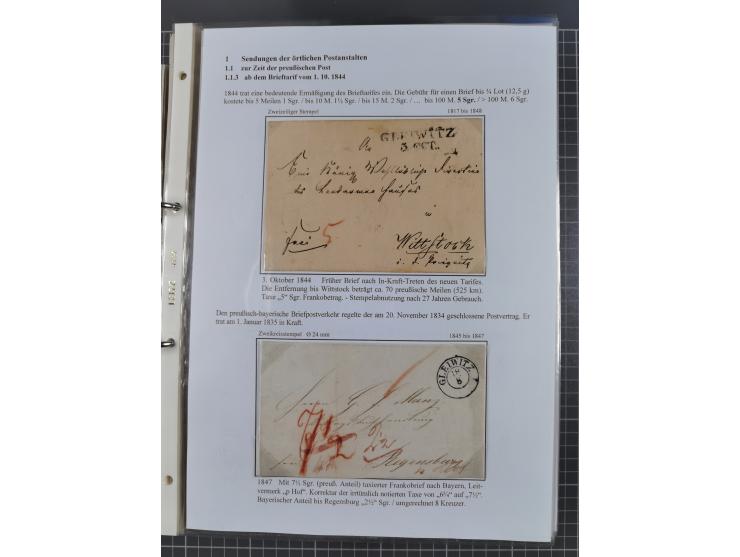 1 Sendungen der örtlichen Postanstalten
1.1 zur Zeit der preußischen Post
1.1.3 ab dem Brieftarif vom 1. 10. 1844
1844 trat eine bedeutende Ermäßigung des Brieftarifes ein. Die Gebühr für einen Brief bis ¾ Lot (12,5 g)
kostete bis 5 Meilen 1 Sgr. / bis 10 M. 1½ Sgr. / bis 15 M. 2 Sgr. / … bis 100 M. 5 Sgr. / > 100 M. 6 Sgr.
Zweizeiliger Stempel 1817 bis 1848
GLEIWITZ
3. OCT.
An
Wittstock
frei 5
3. Oktober 1844 Früher Brief nach In-Kraft-Treten des neuen Tarifes.
Die Entfernung bis Wittstock beträgt ca. 70 preußische Meilen (525 km).
Taxe „5“ Sgr. Frankobetrag. - Stempelabnutzung nach 27 Jahren Gebrauch.
Den preußisch-bayerische Briefpostverkehr regelte der am 20. November 1834 geschlossene Postvertrag. Er
trat am 1. Januar 1835 in Kraft.
Zweikreisstempel Ø 24 mm 1845 bis 1847
GLEIWITZ
Herrn G. J. Manz
7½
Regensburg
1847 Mit 7½ Sgr. (preuß. Anteil) taxierter Frankobrief nach Bayern, Leit-
vermerk „p Hof“. Korrektur der irrtümlich notierten Taxe von „6¼“ auf „7½“.
Bayerischer Anteil bis Regensburg „2½“ Sgr. / umgerechnet 8 Kreuzer.